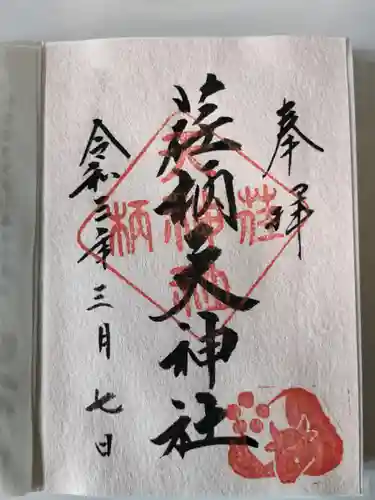 奉拝
荏柄天神社
令和三年三月七日
荏柄天神社